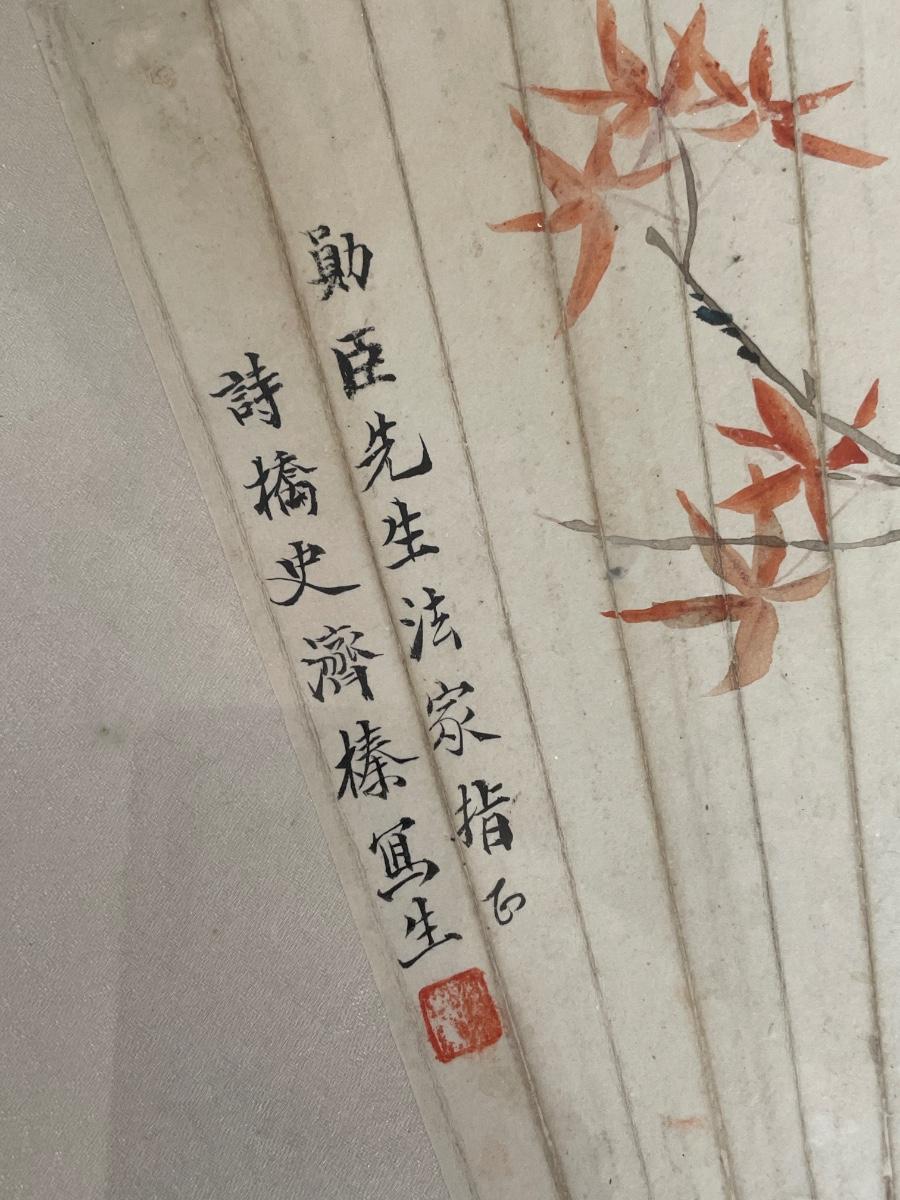 勛臣先生法家指正
詩橋史濟榛寫生